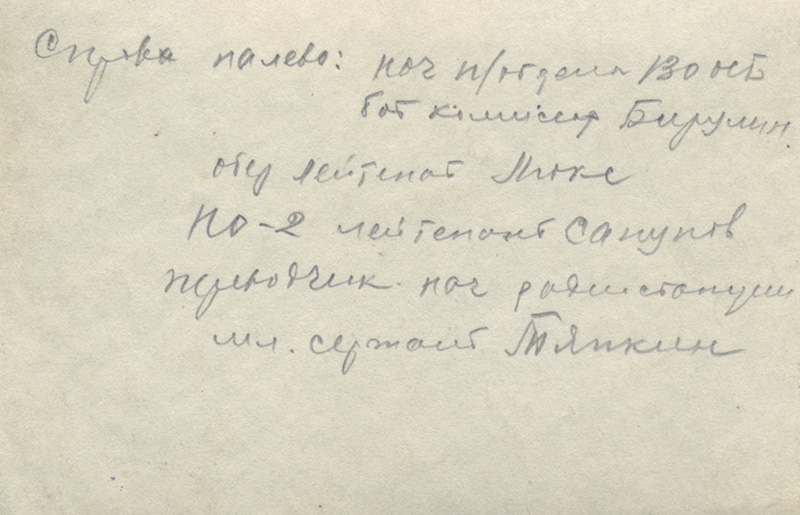 Справа налево: нач п/отдела ВО ОСБ
бат комиссар Бирулин
обер лейтенат Мюке
ПО-2 лейтенант Сапунов
переводчик нач радиостанции
мл. сержант Тяпкин